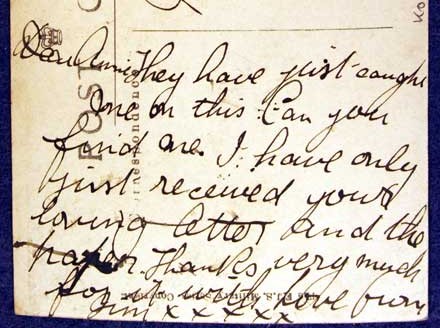 Dear Annie They have just caught
me on this. Can you
find me. I have only
just received your
loving letter and the
paper. Thanks very much
for it with love from
Jim x x x x x
POST C
Correspondence